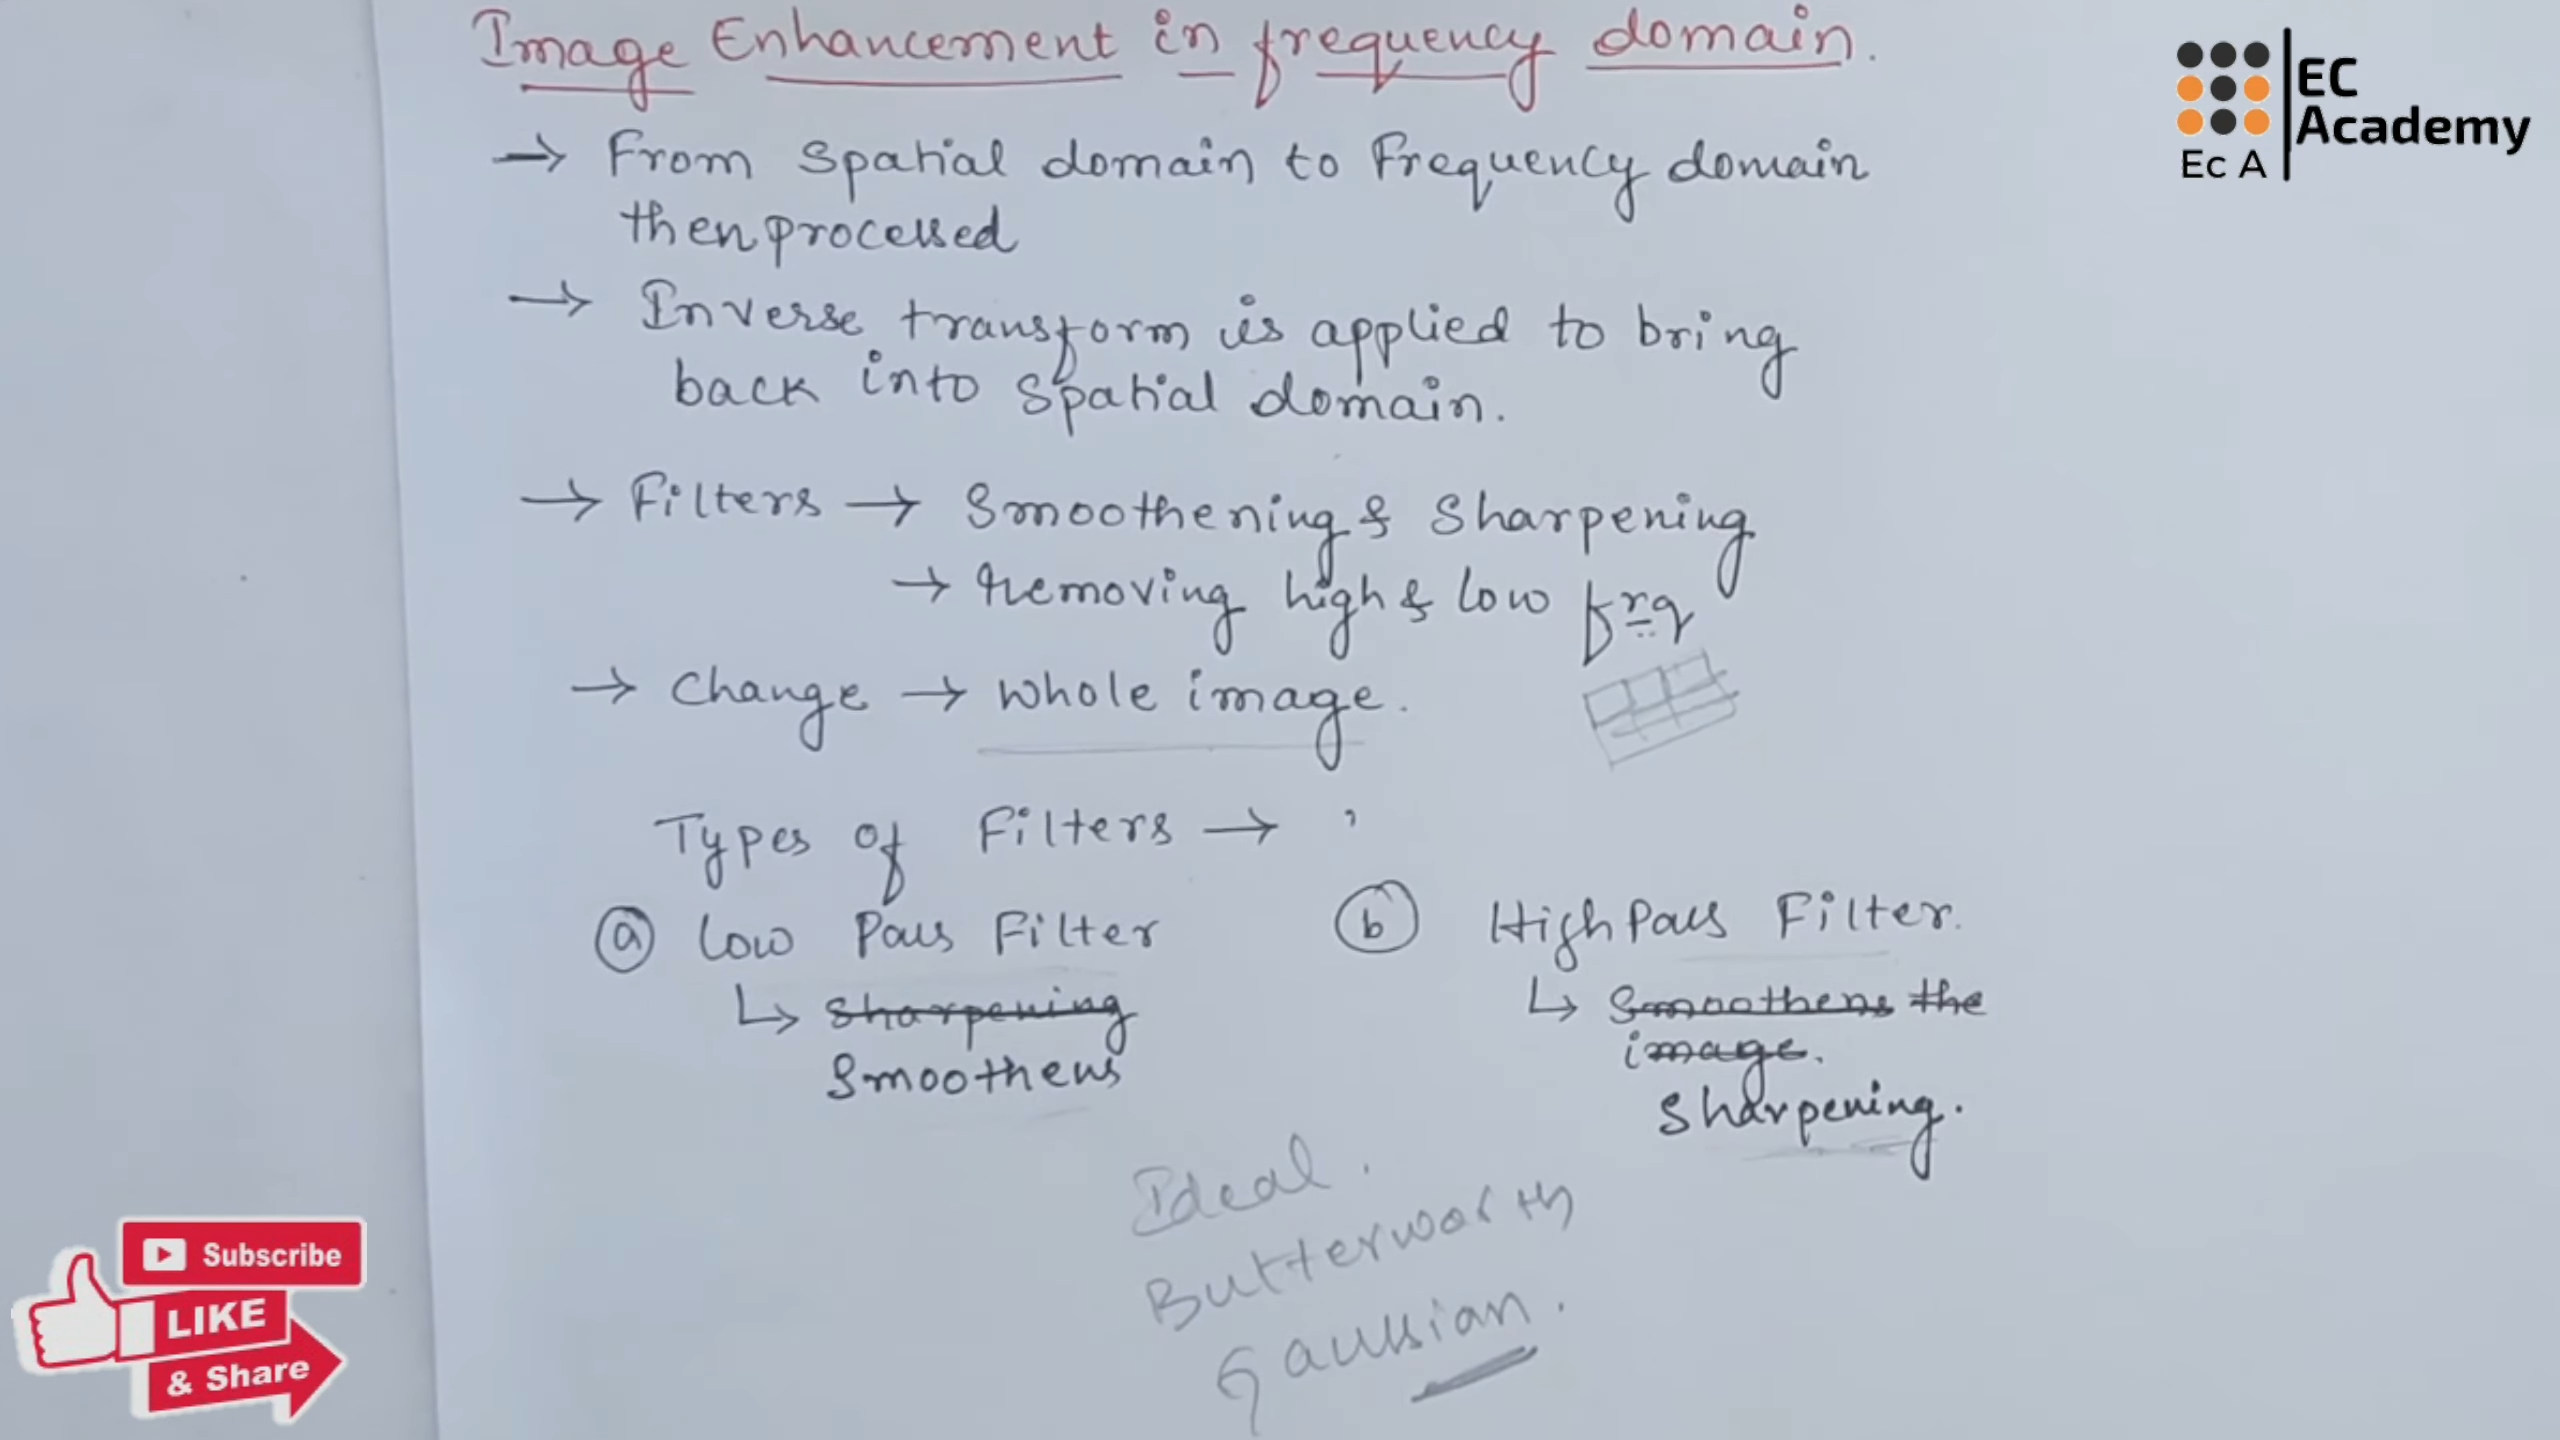 Image Enhancement in frequency domain.
→ From Spatial domain to Frequency domain
then processed
→ Inverse transform is applied to bring
back into Spatial domain.
→ Filters → Smoothening & Sharpening
→ Removing high & low frq
→ Change → Whole image.
Types of Filters →
ⓐ Low Pass Filter
↳ Sharpening
Smoothens
ⓑ High Pass Filter.
↳ Smoothens the
image.
Sharpening.
Ideal.
Butterworth
Gaussian.
EC
Academy
Ec A
Subscribe
LIKE
& Share